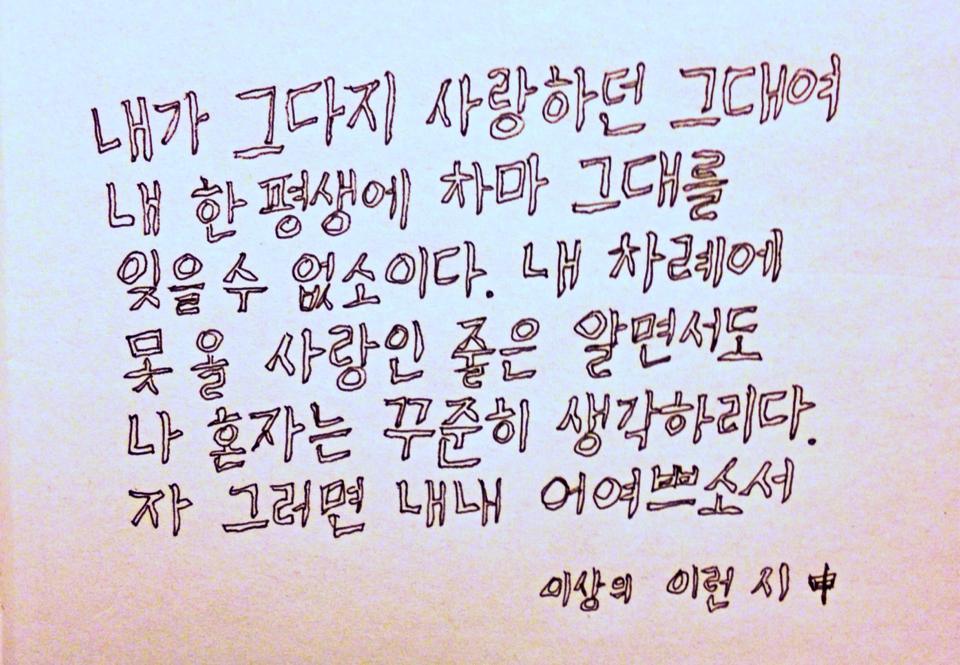 내가 그다지 사랑하던 그대여
내 한평생에 차마 그대를
잊을 수 없소이다. 내 차례에
못 올 사랑인 줄은 알면서도
나 혼자는 꾸준히 생각하리다.
자 그러면 내내 어여쁘소서
이상의 이런 시 中